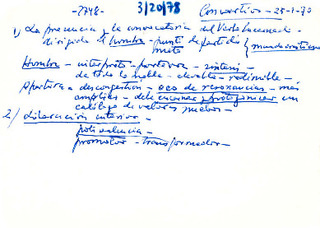 -7748-
3/20/78
Convertirse - 25-1-70
1) La presencia y la convocatoria del Verbo Encarnado
dirigida al hombre - punto de partida
meta
{ mundo cristiano
Hombre - intérprete - portavoz - síntesis
de todo lo noble - - redimible -
Apertura = descongestión - eco de resonancias - más
amplias - debe encarnar y protagonizar un
catálogo de valores nuevos -
2) liberación interior -
polivalencia -
promotor - transformador -